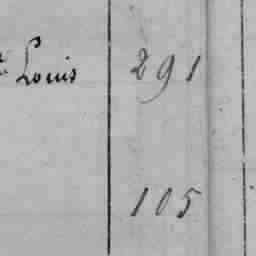 Louis 291
105